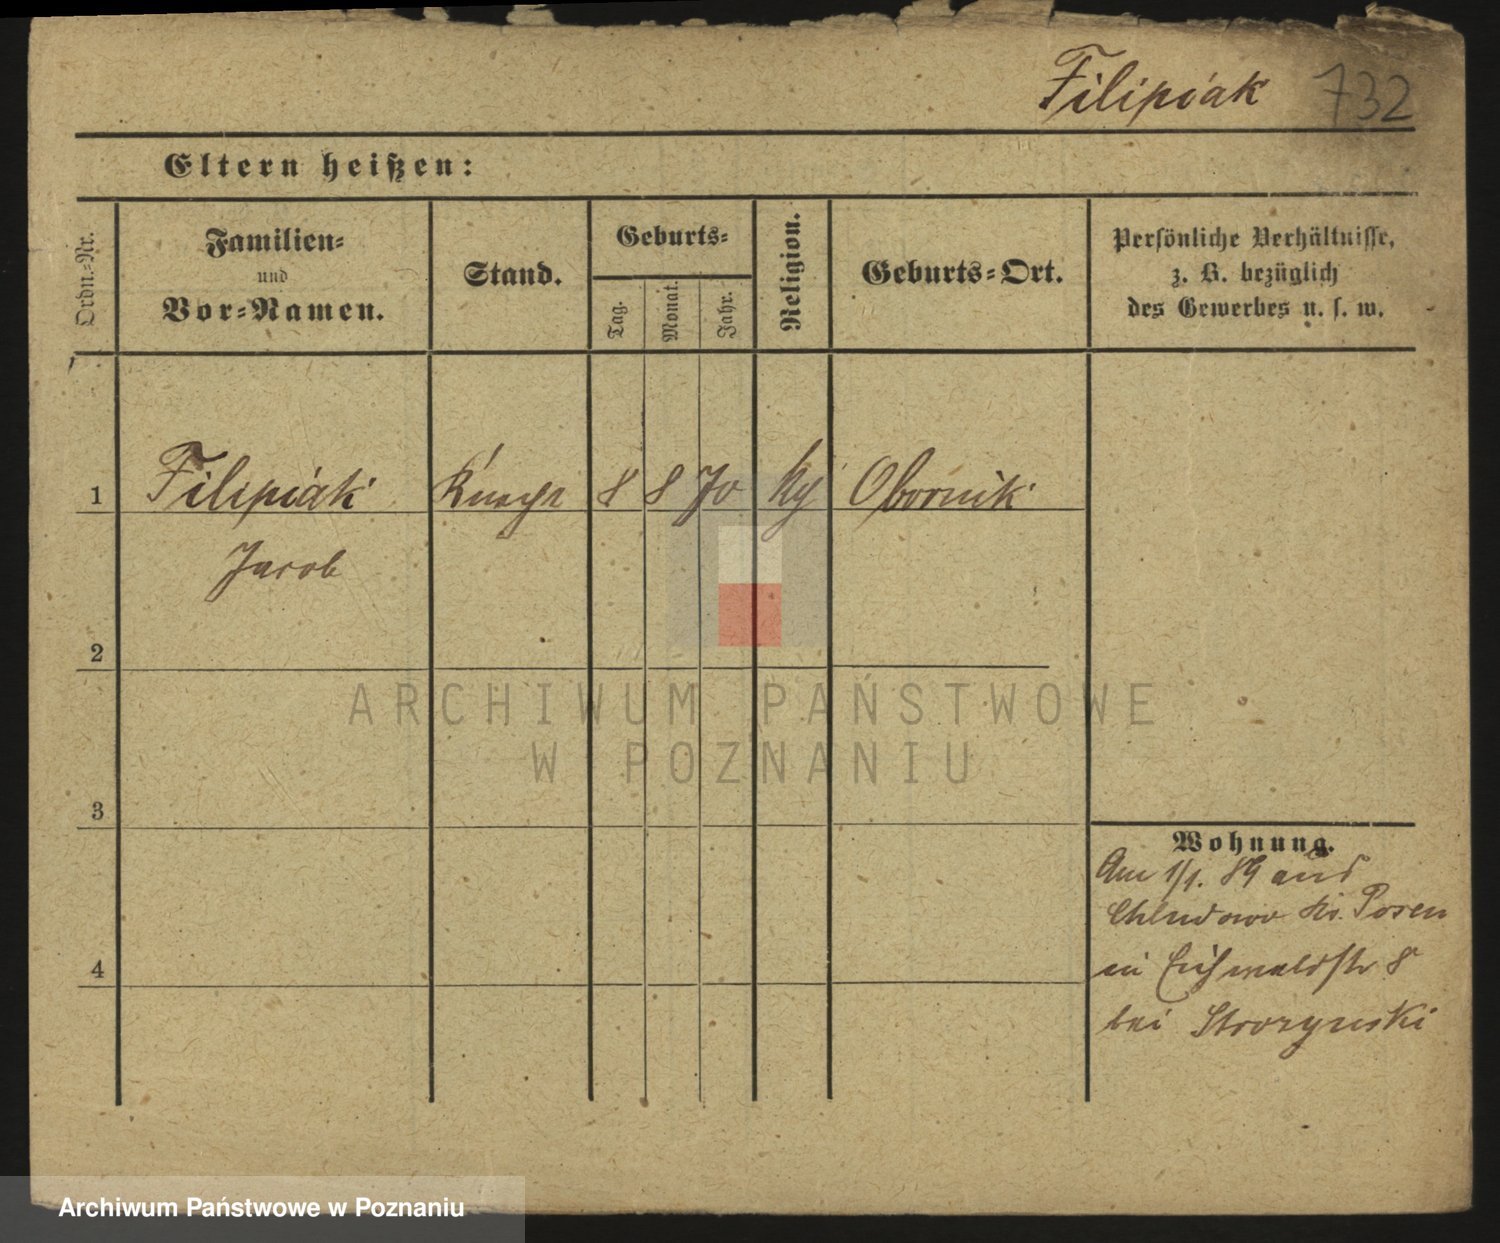 Filipiak 732
Eltern heißen:
Ordn.-Nr.
Familien-
und
Vor-Namen.
Stand.
Geburts-
Tag.
Monat.
Jahr.
Religion.
Geburts-Ort.
Persönliche Verhältnisse,
z. B. bezüglich
des Gewerbes u. s. w.
1 Filipiak Knecht 8 8 70 Obornik
Jacob
2
3
4
Wohnung.
Am 1/1. 89 aus
Chludowo Kr. Posen
in Eichwaldstr 8
bei
ARCHIWUM PAŃSTWOWE
W POZNANIU
Archiwum Państwowe w Poznaniu